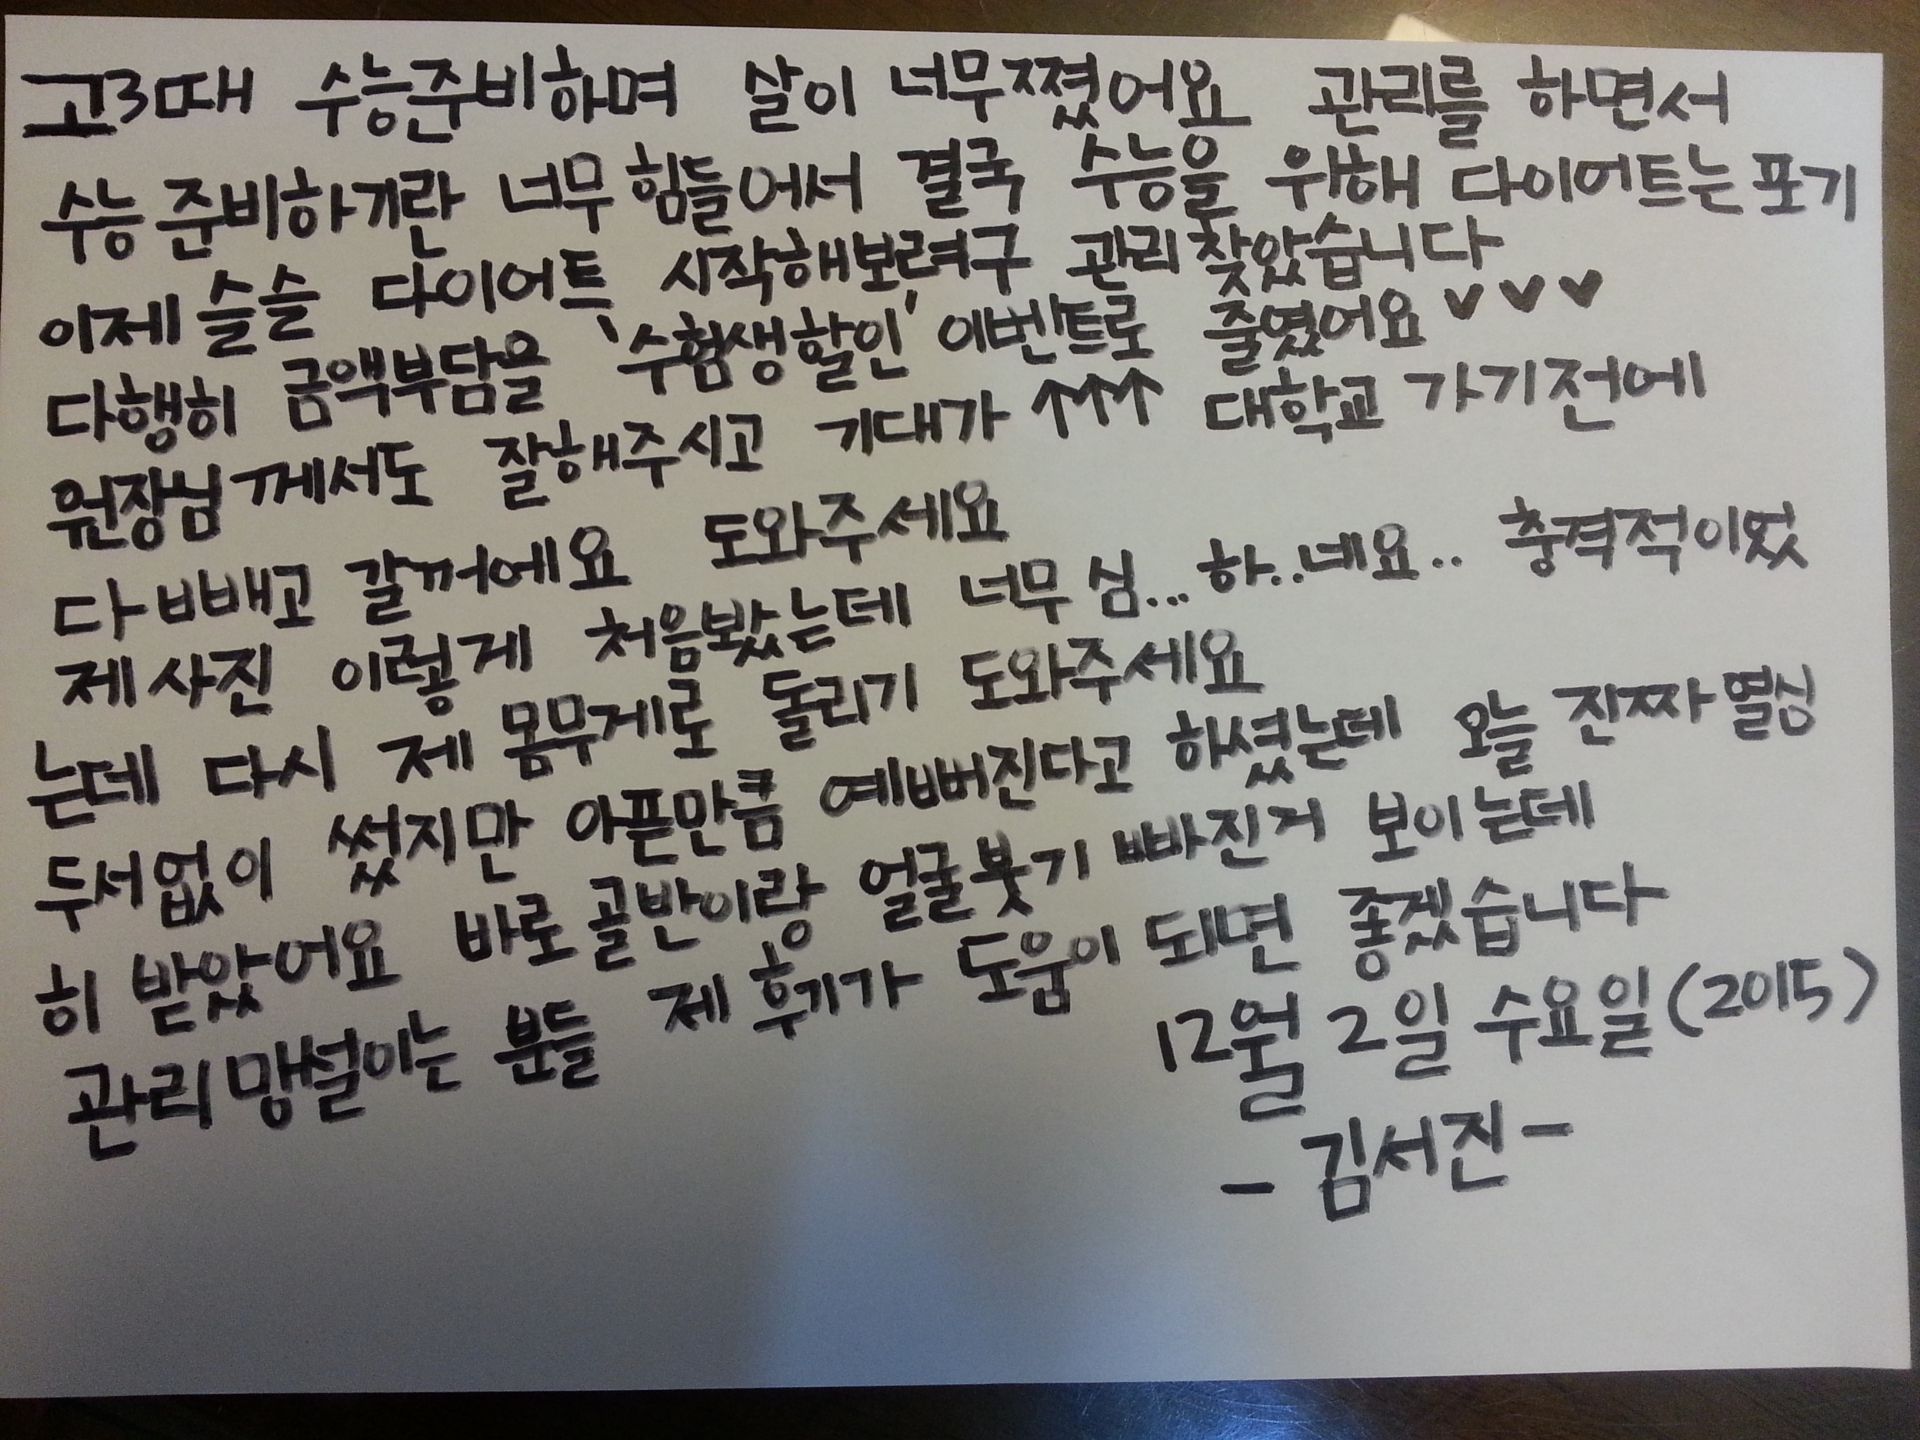 고3때 수능준비하며 살이 너무쪘어요 관리를 하면서
수능 준비하기란 너무 힘들어서 결국 수능을 위해 다이어트는 포기
이제 슬슬 다이어트 시작해보려구 관리 찾았습니다
다행히 금액부담을 '수험생할인' 이벤트로 줄였어요 ♥♥♥
원장님께서도 잘해주시고 기대가 ↑↑↑ 대학교 가기전에
다 빼고 갈꺼에요 도와주세요
제 사진 이렇게 처음봤는데 너무 심... 하..네요.. 충격적이었
는데 다시 제 몸무게로 돌리기 도와주세요
두서없이 썼지만 아픈만큼 예뻐진다고 하셨는데 오늘 진짜 열심
히 받았어요 바로 골반이랑 얼굴붓기 빠진거 보이는데
관리 망설이는 분들 제 후기가 도움이 되면 좋겠습니다
12월 2일 수요일 (2015)
- 김서진 -